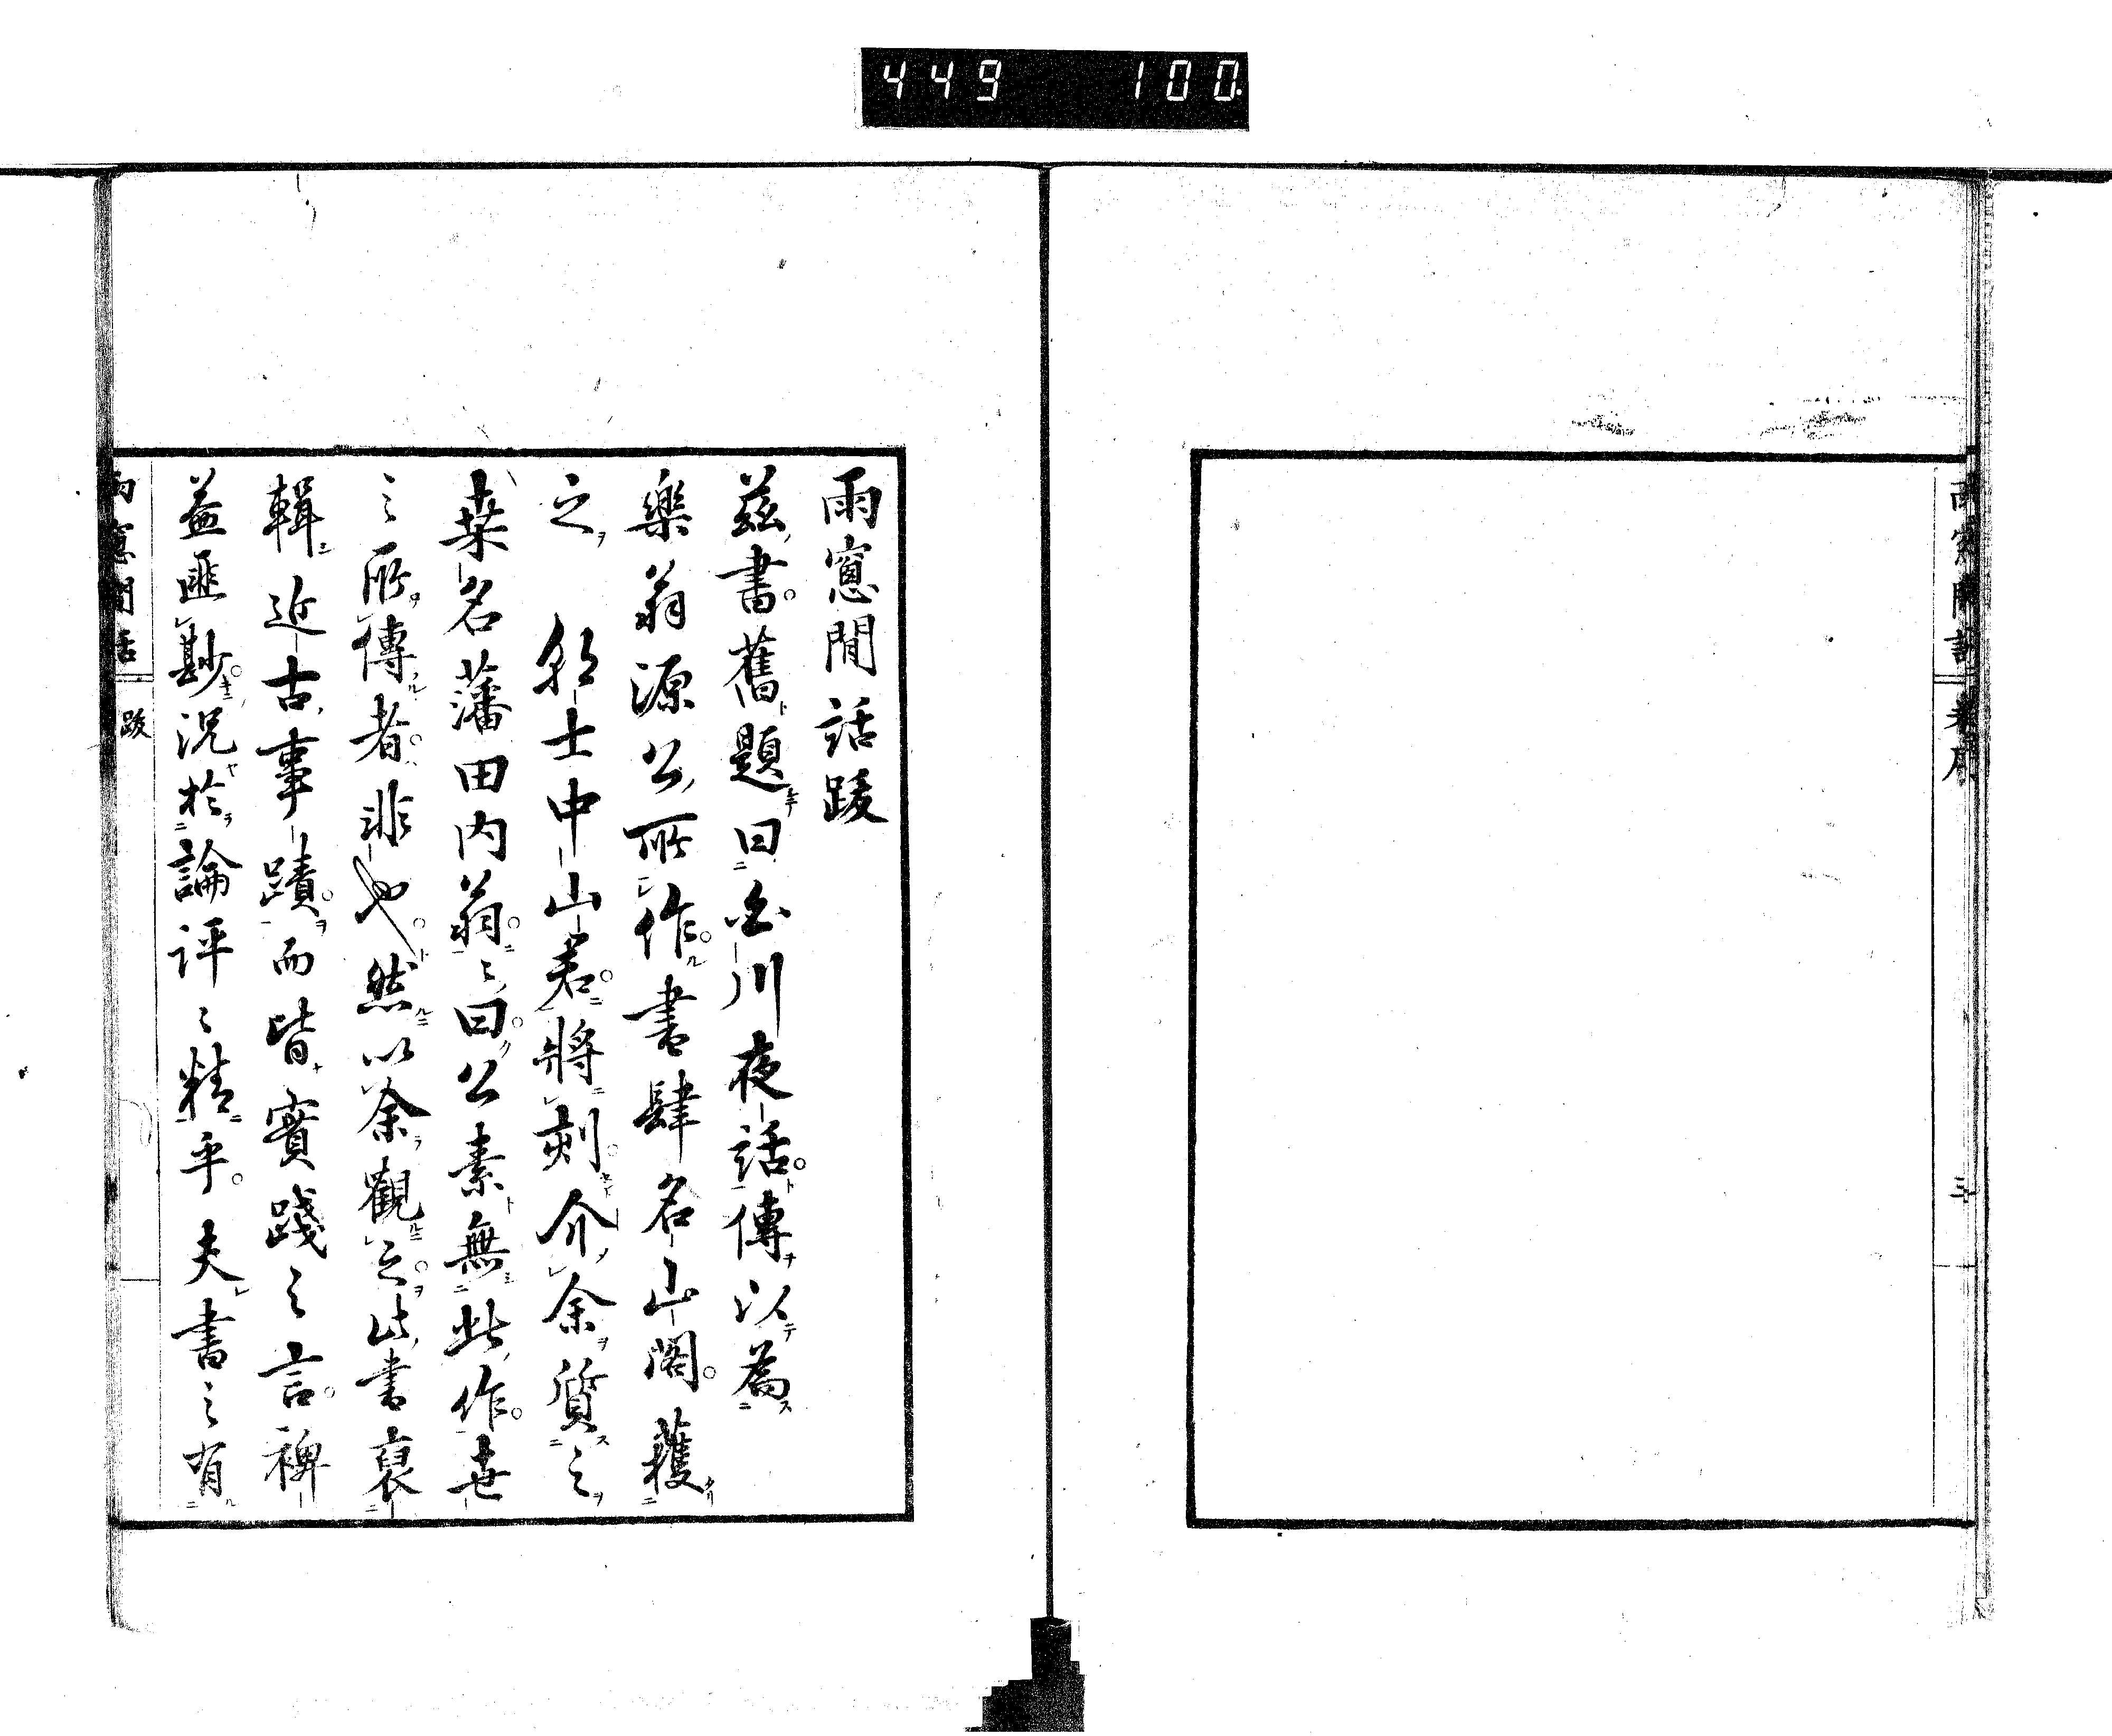 449 100
雨窓閒話跋
茲書舊題曰白川夜話傳以為
樂翁源公所作書肆名山閣獲
之 邦士中山君將刻介余質之
桒名藩田内翁〻曰公素無此作世
之所傳者非也然以余觀之此書裒
輯近古事蹟而皆實踐之言裨
益匪尠況於論評之精乎夫書之有
雨窓閒話 跋
三